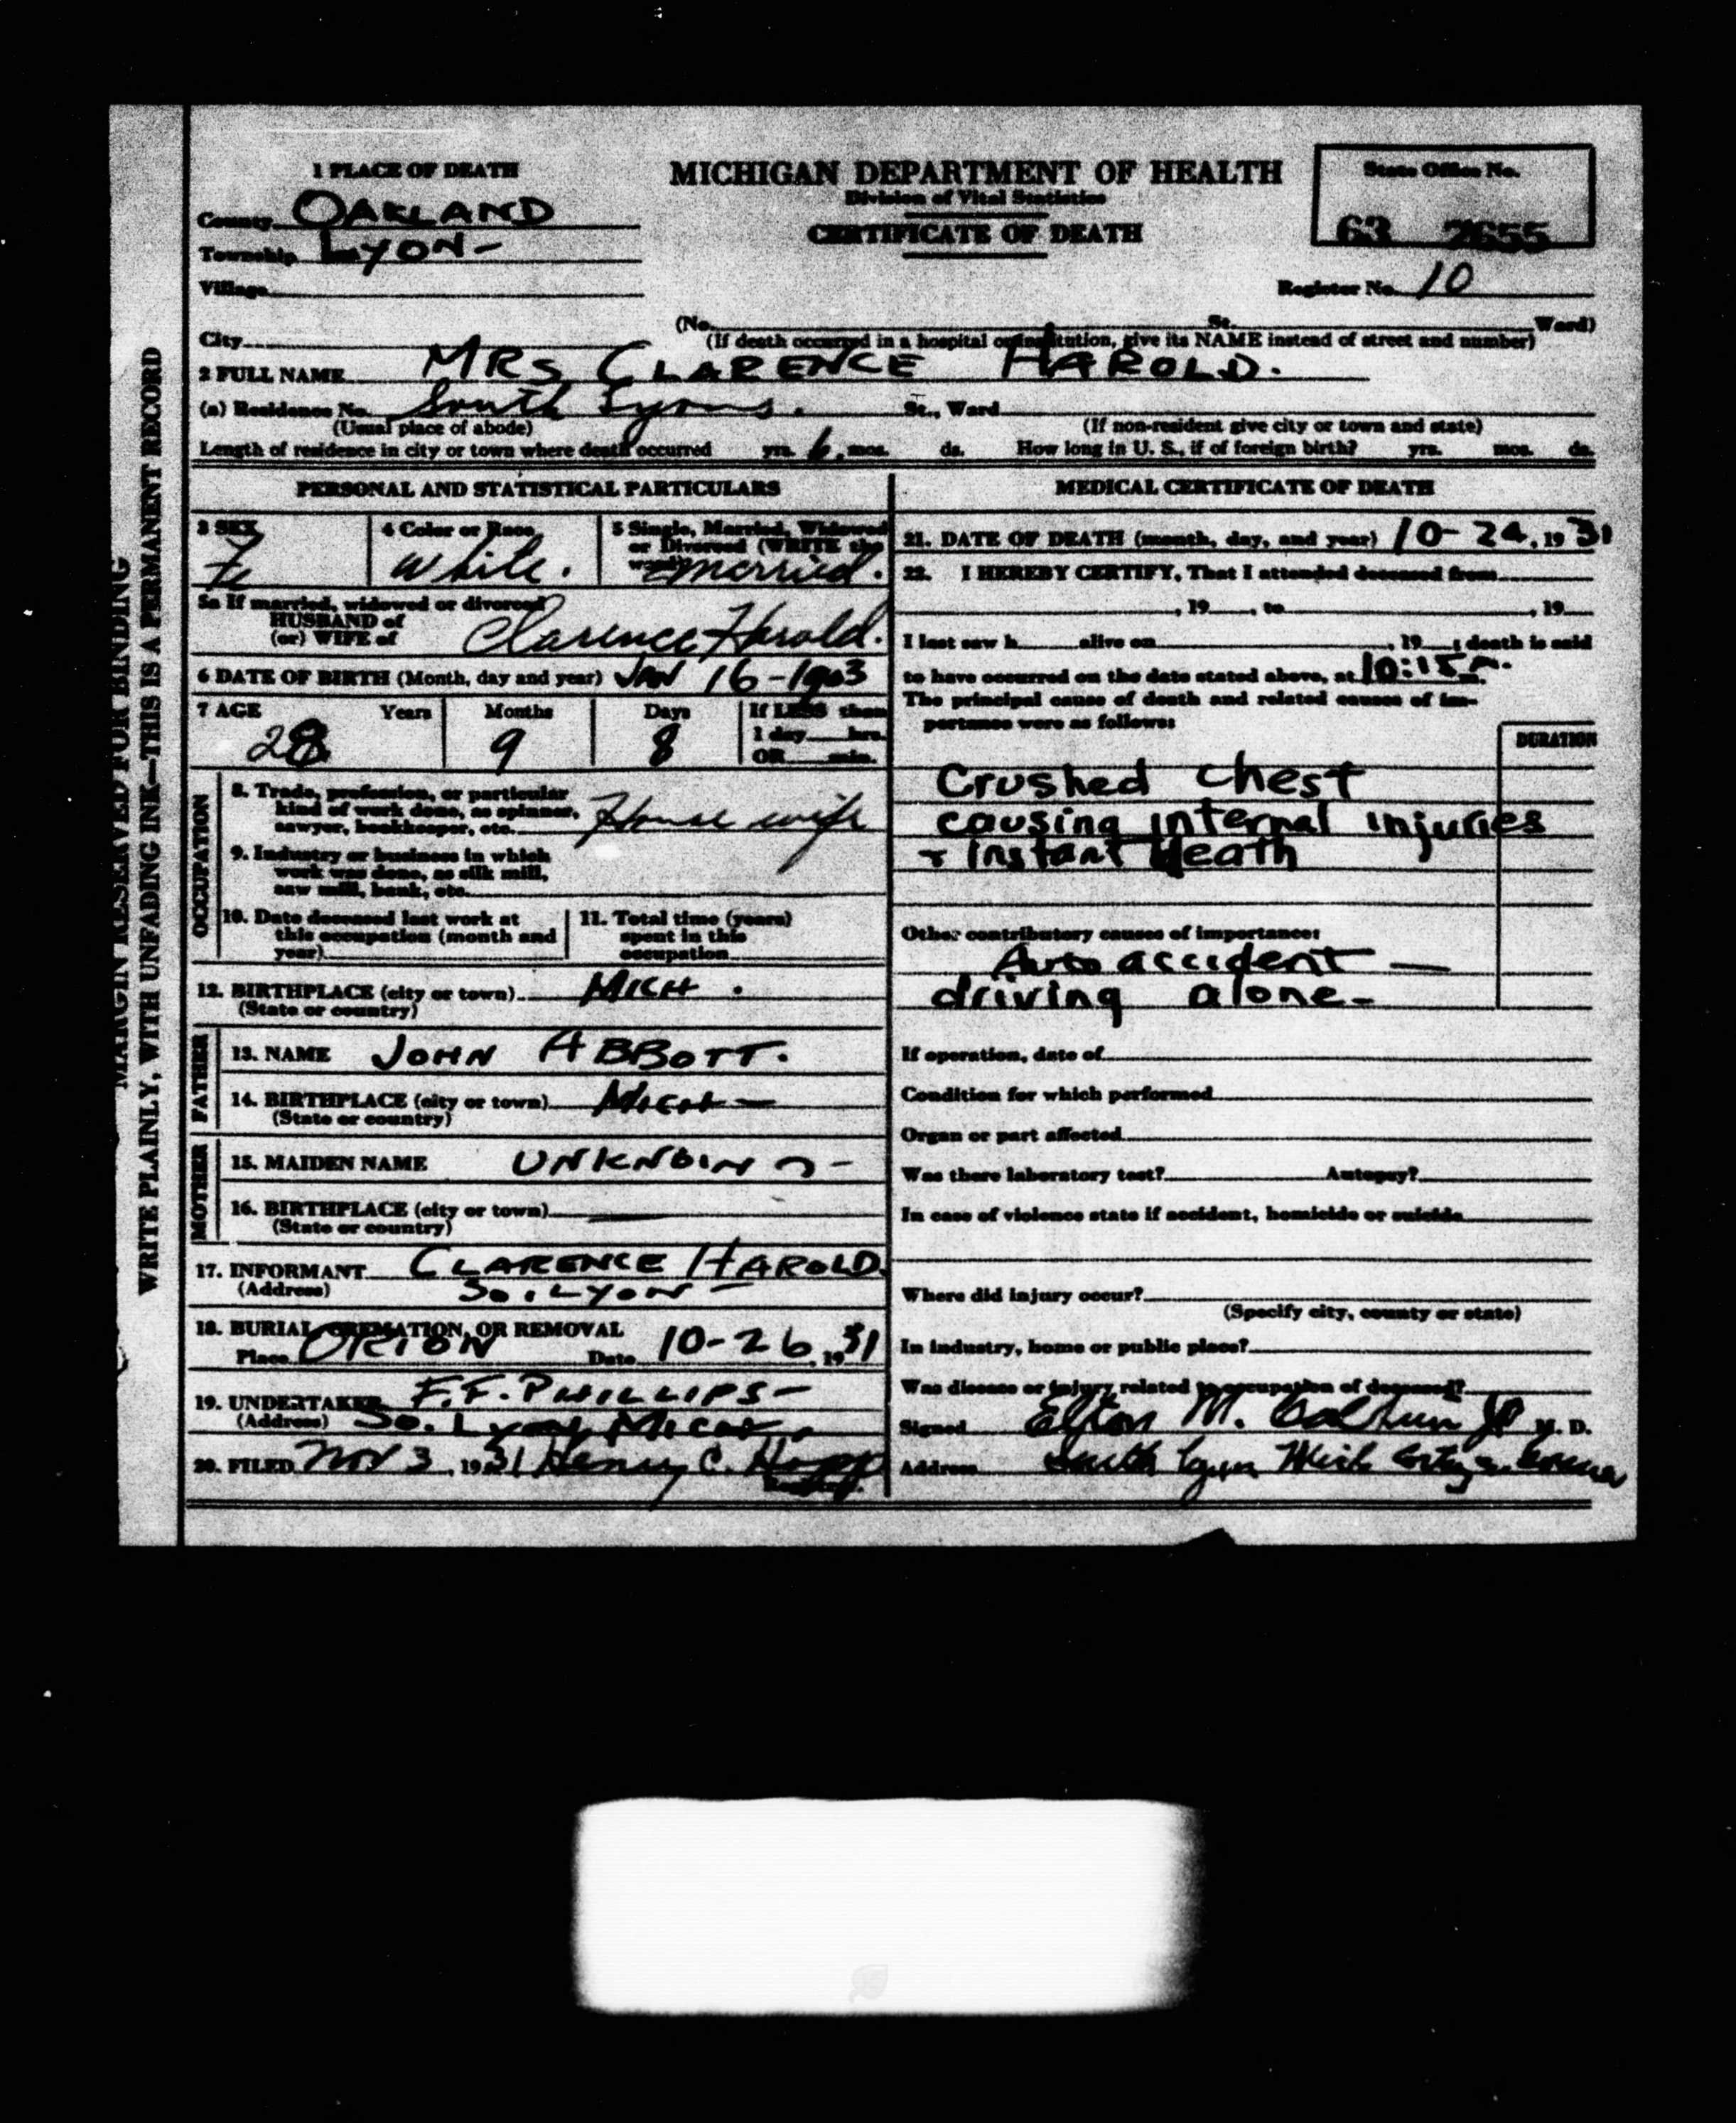 1 PLACE OF DEATH
MICHIGAN DEPARTMENT OF HEALTH
Division of Vital Statistics
CERTIFICATE OF DEATH
State Office No.
63 2655
County OAKLAND
Township LYON-
Village
Register No. 10
City
(No. St. Ward)
(If death occurred in a hospital or institution, give its NAME instead of street and number)
2 FULL NAME MRS CLARENCE HAROLD.
(a) Residence No. South Lyons. St., Ward
(Usual place of abode)
(If non-resident give city or town and state)
Length of residence in city or town where death occurred yrs. 6 mos. ds. How long in U. S., if of foreign birth? yrs. mos. ds.
MARGIN RESERVED FOR BINDING
WRITE PLAINLY, WITH UNFADING INK—THIS IS A PERMANENT RECORD
PERSONAL AND STATISTICAL PARTICULARS
3 SEX
Fe
4 Color or Race
White.
5 Single, Married, Widowed
or Divorced (WRITE the
word)
married.
5a If married, widowed or divorced
HUSBAND of
(or) WIFE of Clarence Harold.
6 DATE OF BIRTH (Month, day and year) JAN 16-1903
7 AGE Years Months Days If LESS than
1 day hrs.
OR min.
28 9 8
OCCUPATION
8. Trade, profession, or particular
kind of work done, as spinner,
sawyer, bookkeeper, etc. House wife
9. Industry or business in which
work was done, as silk mill,
saw mill, bank, etc.
10. Date deceased last work at
this occupation (month and
year)
11. Total time (years)
spent in this
occupation
12. BIRTHPLACE (city or town) MICH.
(State or country)
FATHER
13. NAME JOHN ABBOTT.
14. BIRTHPLACE (city or town) MICH-
(State or country)
MOTHER
15. MAIDEN NAME UNKNOWN-
16. BIRTHPLACE (city or town)
(State or country)
17. INFORMANT CLARENCE HAROLD.
(Address) So. LYON-
18. BURIAL, CREMATION, OR REMOVAL
Place ORION Date 10-26, 1931
19. UNDERTAKER F.F. PHILLIPS-
(Address) So. Lyon, Mich.
20. FILED Nov 3, 1931 Henry C. Hopp
MEDICAL CERTIFICATE OF DEATH
21. DATE OF DEATH (month, day, and year) 10-24, 1931
22. I HEREBY CERTIFY, That I attended deceased from
, 19 , to , 19
I last saw h alive on , 19 ; death is said
to have occurred on the date stated above, at 10:15 m.
The principal cause of death and related causes of im-
portance were as follows:
DURATION
Crushed chest
causing internal injuries
+ instant death
Other contributory causes of importance:
Auto accident —
driving alone-
If operation, date of
Condition for which performed
Organ or part affected
Was there laboratory test? Autopsy?
In case of violence state if accident, homicide or suicide
Where did injury occur?
(Specify city, county or state)
In industry, home or public place?
Was disease or injury related to occupation of deceased?
Signed Elton M. Calhun JP M. D.
Address South Lyon Mich